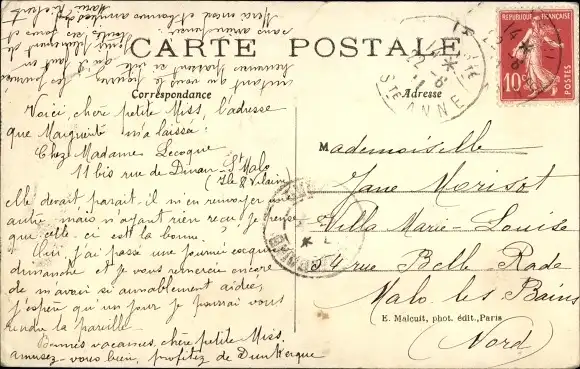 CARTE POSTALE
Correspondance
Adresse
RÉPUBLIQUE FRANÇAISE
10c
POSTES
STE ANNE
Voici, chère petite Miss, l'adresse
que Marguerite m'a laissée :
Chez Madame Lecoque
11 bis rue de Dinan - St Malo
(Ille & Vilaine)
elle devait, paraît-il, m'en renvoyer une
autre mais n'ayant rien reçu, je pense
que celle-ci est la bonne.
Oui, j'ai passé une journée exquise
dimanche et je vous remercie encore
de m'avoir si aimablement aidée,
j'espère qu'un jour je pourrai vous
rendre la pareille.
Bonnes vacances, chère petite Miss.
amusez-vous bien, profitez de Dunkerque
Mademoiselle
Jane Morisot
Villa Marie-Louise
54 rue Belle Rade
Malo les Bains
(Nord)
E. Malcuit, phot. édit., Paris